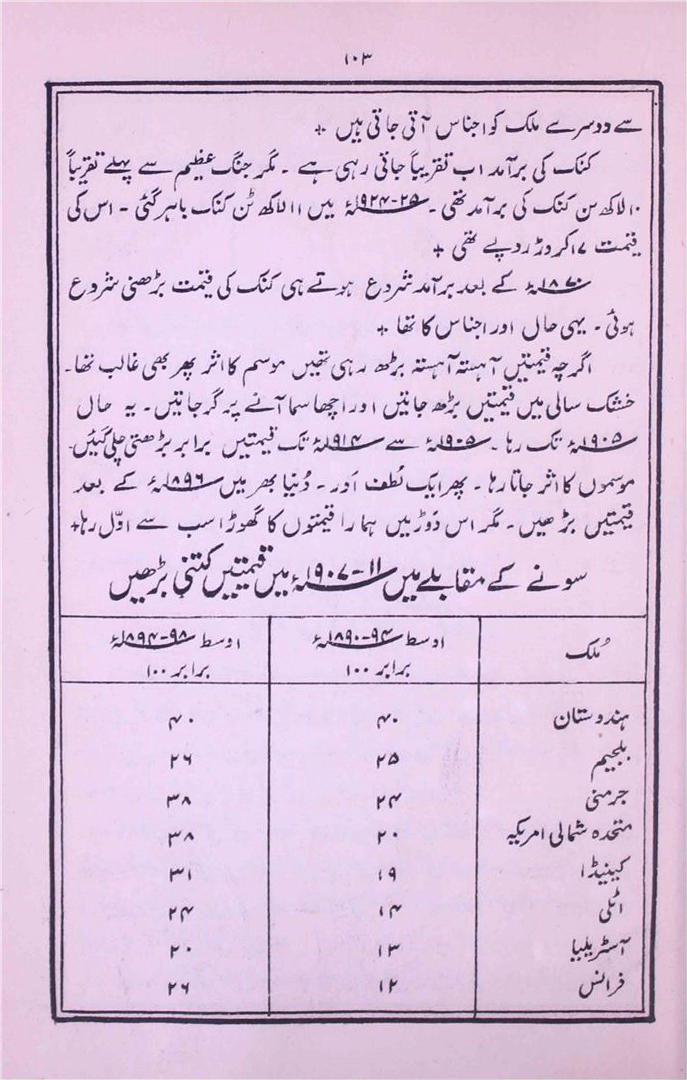 ۱۰۳
سے دوسرے ملک کو اجناس آتی جاتی ہیں +
کنک کی برآمد اب تقریباً جاتی رہی ہے ۔ مگر جنگ عظیم سے پہلے تقریباً
۱۰ لاکھ من کنک کی برآمد تھی ۔ ۲۵-۱۹۲۴ء میں ۱۱ لاکھ ٹن کنک باہر گئی ۔ اس کی
قیمت ۱۷ کروڑ روپے تھی +
۱۸۷۰ء کے بعد برآمد شروع ہوتے ہی کنک کی قیمت بڑھنی شروع
ہوئی ۔ یہی حال اور اجناس کا تھا +
اگرچہ قیمتیں آہستہ آہستہ بڑھ رہی تھیں موسم کا اثر پھر بھی غالب تھا ۔
خشک سالی میں قیمتیں بڑھ جاتیں اور اچھا سما آنے پر گر جاتیں ۔ یہ حال
۱۹۰۵ء تک رہا ۔ ۱۹۰۵ء سے ۱۹۱۴ء تک قیمتیں برابر بڑھتی چلی گئیں ۔
موسموں کا اثر جاتا رہا ۔ پھر ایک لُطف اور ۔ دُنیا بھر میں ۱۸۹۶ء کے بعد
قیمتیں بڑھیں ۔ مگر اس دَوڑ میں ہمارا قیمتوں کا گھوڑا سب سے اوّل رہا +
سونے کے مقابلے میں ۱۱-۱۹۰۷ء میں قیمتیں کتنی بڑھیں
مُلک اوسط ۹۴-۱۸۹۰ء برابر ۱۰۰ اوسط ۹۸-۱۸۹۴ء برابر ۱۰۰
ہندوستان ۴۰ ۴۰
بلجیم ۲۵ ۲۶
جرمنی ۲۴ ۳۸
متحدہ شمالی امریکہ ۲۰ ۳۸
کینیڈا ۱۹ ۳۱
اٹلی ۱۴ ۲۴
آسٹریلیا ۱۳ ۲۰
فرانس ۱۲ ۲۶